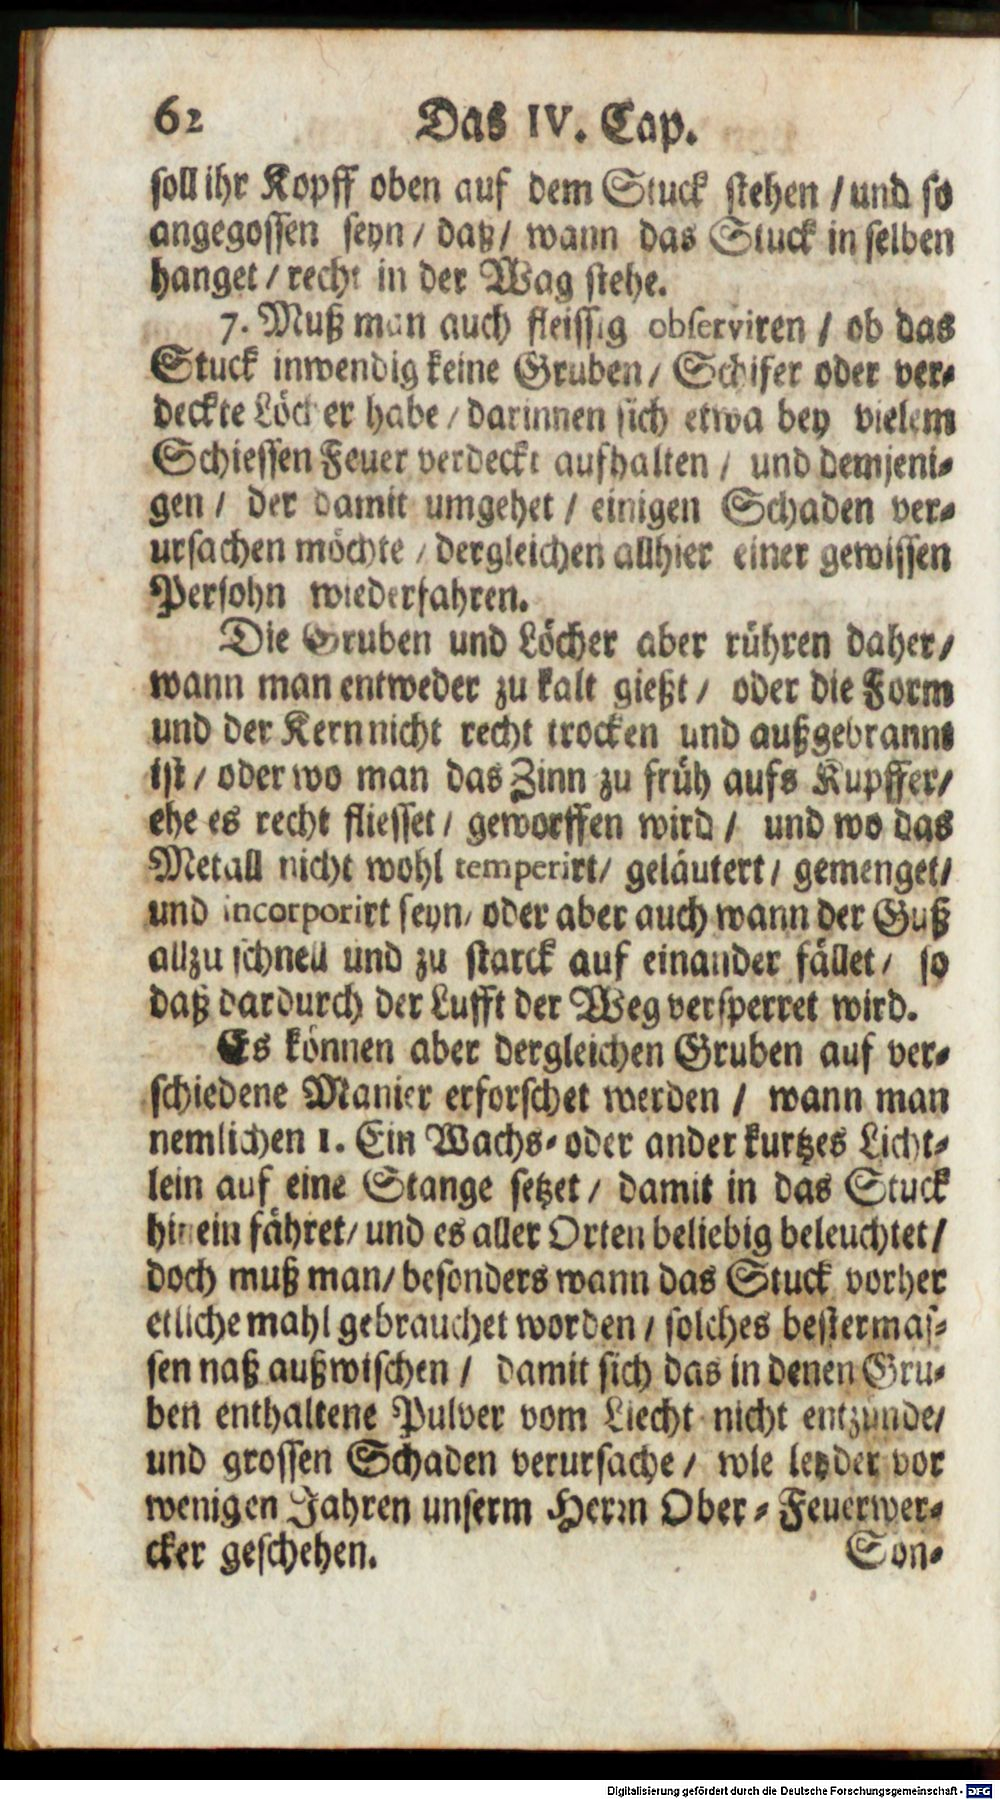 62 Das IV. Cap.
soll ihr Kopff oben auf dem Stuck stehen / und so
angegossen seyn / daß / wann das Stuck in selben
hanget / recht in der Wag stehe.
7. Muß man auch fleissig observiren / ob das
Stuck inwendig keine Gruben / Schifer oder ver-
deckte Löcher habe / darinnen sich etwa bey vielem
Schiessen Feuer verdeckt aufhalten / und demjeni-
gen / der damit umgehet / einigen Schaden ver-
ursachen möchte / dergleichen allhier einer gewissen
Persohn wiederfahren.
Die Gruben und Löcher aber rühren daher /
wann man entweder zu kalt gießt / oder die Form
und der Kern nicht recht trocken und außgebrannt
ist / oder wo man das Zinn zu früh aufs Kupffer /
ehe es recht fliesset / geworffen wird / und wo das
Metall nicht wohl temperirt / geläutert / gemenget /
und incorporirt seyn / oder aber auch wann der Guß
allzu schnell und zu starck auf einander fället / so
daß dardurch der Lufft der Weg versperret wird.
Es können aber dergleichen Gruben auf ver-
schiedene Manier erforschet werden / wann man
nemlichen 1. Ein Wachs- oder ander kurtzes Licht-
lein auf eine Stange setzet / damit in das Stuck
hinein fähret / und es aller Orten beliebig beleuchtet /
doch muß man / besonders wann das Stuck vorher
etliche mahl gebrauchet worden / solches bestermas-
sen naß außwischen / damit sich das in denen Gru-
ben enthaltene Pulver vom Liecht nicht entzünde /
und grossen Schaden verursache / wie leyder vor
wenigen Jahren unserm Herrn Ober-Feuerwer-
cker geschehen. Son-
Digitalisierung gefördert durch die Deutsche Forschungsgemeinschaft - DFG